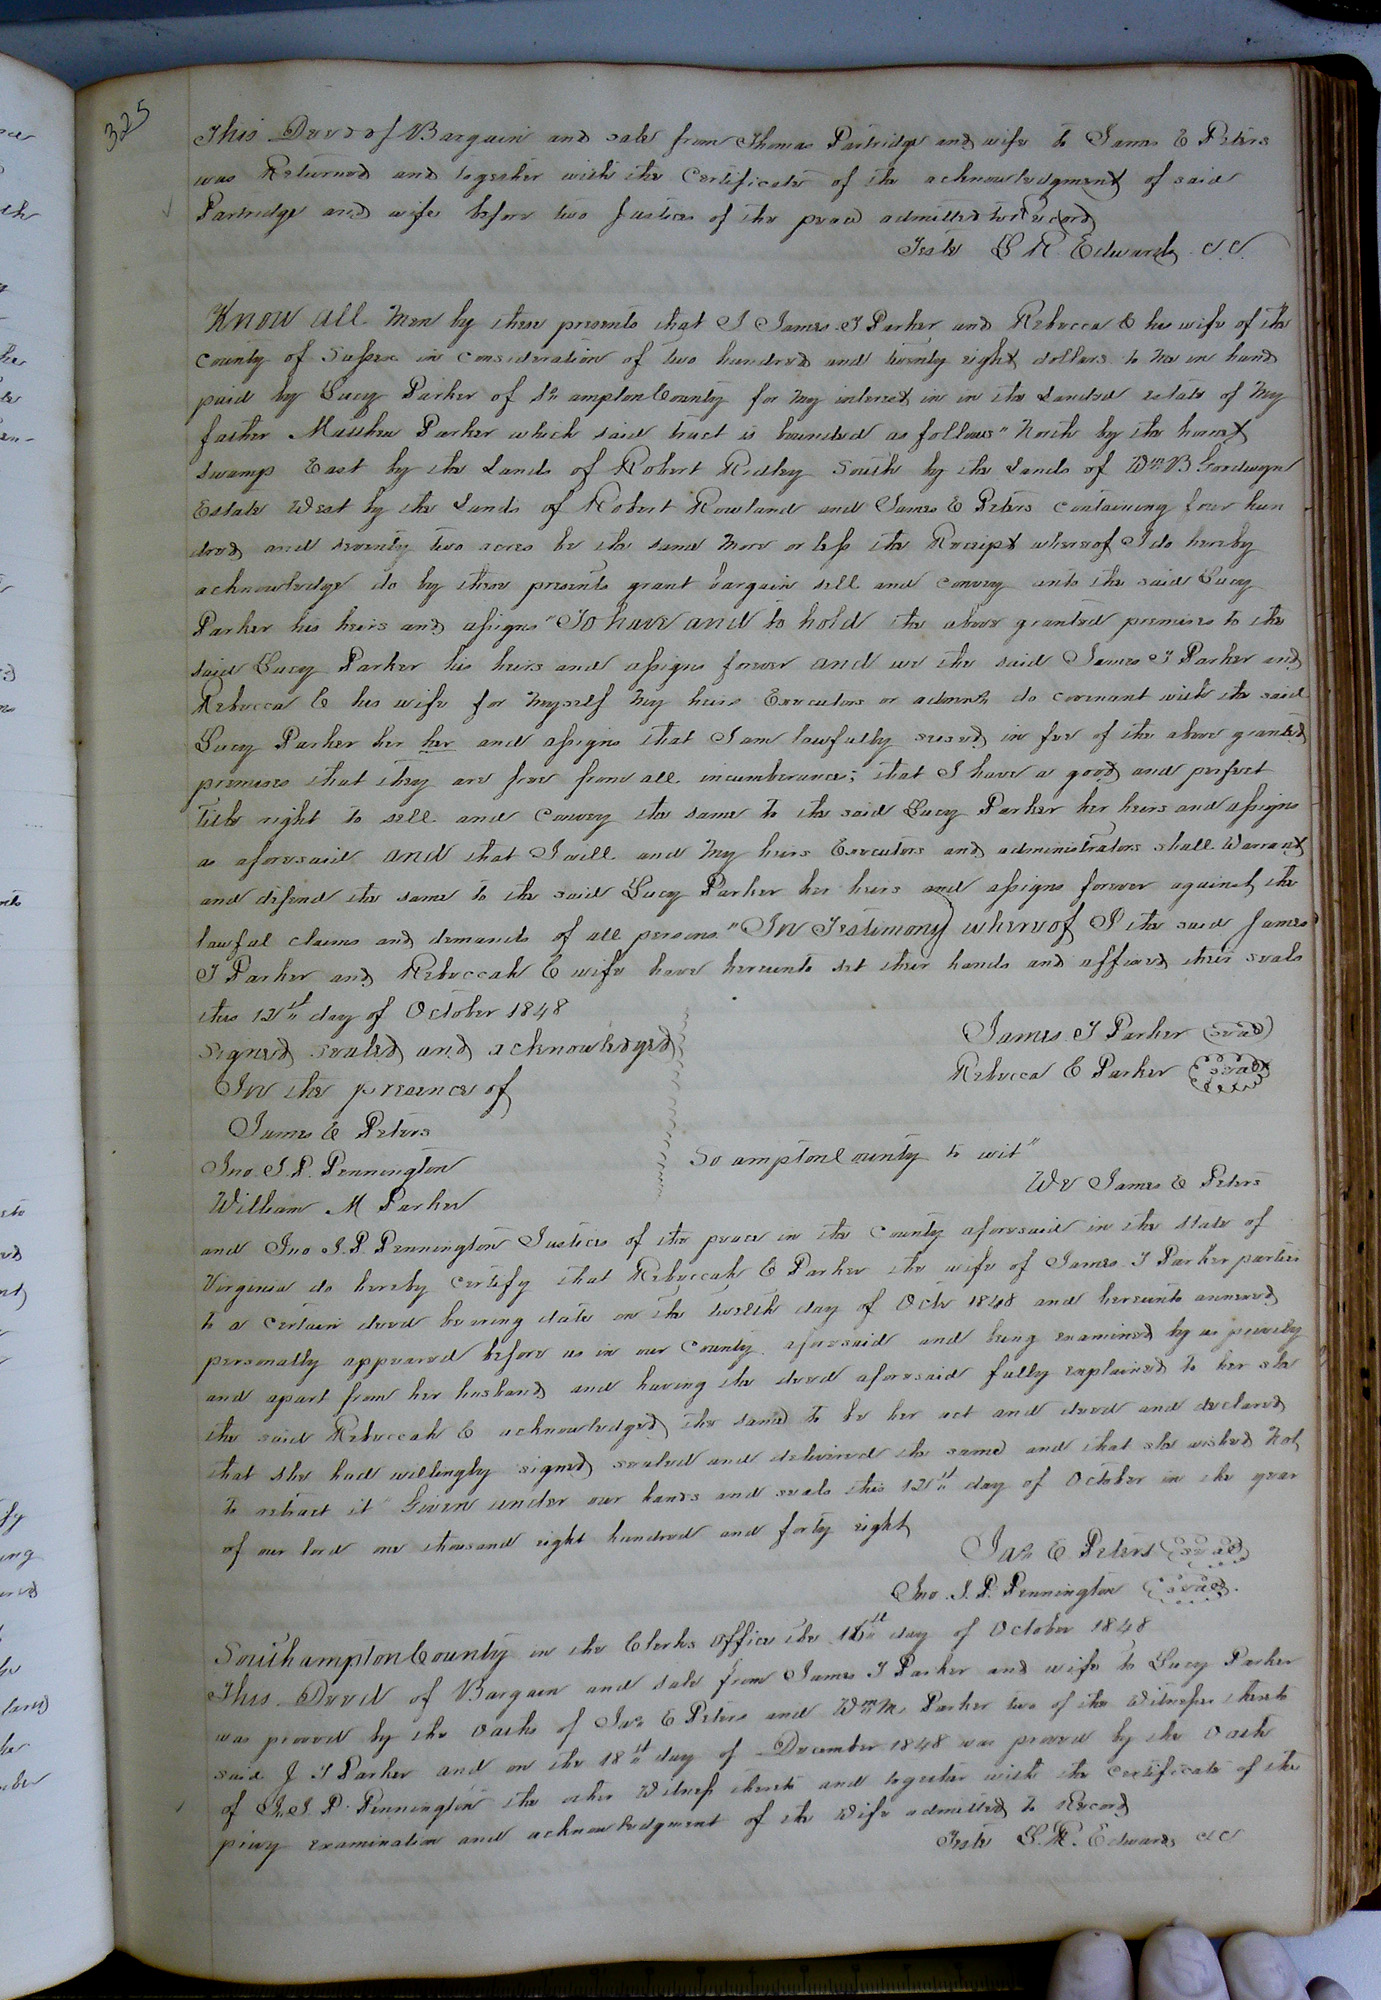 325
This Deed of Bargain and sale from Thomas Partridge and wife to James E Peters
was Returned and together with the Certificate of the acknowledgment of said
Partridge and wife before two Justices of the peace admitted to Record
Teste L R Edwards C.C.
Know all Men by these presents that I James T Parker and Rebecca E his wife of the
County of Sussex in Consideration of two hundred and twenty eight dollars to Me in hand
paid by Lucy Parker of So ampton County for My interest in in the Landed estate of My
father Matthew Parker which said tract is bounded as follows" North by the
Swamp East by the Lands of Robert Ridley South by the Lands of Wm B Goodwyn
Estate West by the Lands of Robert Rowland and James E Peters Containing four hun
dred and seventy two acres be the same More or less the Receipt whereof I do hereby
acknowledge do by these presents grant bargain sell and Convey unto the said Lucy
Parker his heirs and assigns "To have and to hold the above granted premises to the
said Lucy Parker his heirs and assigns forever and we the said James T Parker and
Rebecca E his wife for Myself My heirs Executors or adminrs do covenant with the said
Lucy Parker her her and assigns that I am lawfully seised in fee of the above granted
premises that they are free from all incumberance; that I have a good and perfect
Title right to sell and Convey the same to the said Lucy Parker her heirs and assigns
as aforesaid and that I will and My heirs Executors and administrators shall Warrant
and defend the same to the said Lucy Parker her heirs and assigns forever against the
lawful claims and demands of all persons." In Testimony whereof I the said James
T Parker and Rebeccah E wife have hereunto set their hands and affixed their seals
this 12th day of October 1848
Signed sealed and acknowledged
James T Parker (seal)
In the presence of
Rebecca E Parker (seal)
James E Peters
Jno. J. P. Pennington
So ampton County to wit"
William M Parker
We James E Peters
and Jno J. P. Pennington Justices of the peace in the County aforesaid in the State of
Virginia do hereby certify that Rebeccah E Parker the wife of James T Parker parties
to a certain deed bearing date on the twelth day of Octr 1848 and hereunto annexed
personally appeared before us in our County aforesaid and being examined by us privily
and apart from her husband and having the deed aforesaid fully explained to her she
the said Rebeccah E acknowledged the same to be her act and deed and declared
that she had willingly signed sealed and delivered the same and that she wished Not
to retract it" Given under our hands and seals this 12th day of October in the year
of our lord one thousand eight hundred and forty eight
Jas E Peters (seal)
Jno. J. P. Pennington (seal)
Southampton County in the Clerks Office the 16th day of October 1848
This Deed of Bargain and sale from James T Parker and wife to Lucy Parker
was proved by the oaths of Jas E Peters and Wm M. Parker two of the Witnesses thereto
said J T Parker and on the 18th day of December 1848 was proved by the Oath
of J. P. Pennington the other Witness thereto and together with the certificate of the
privy examination and acknowledgment of the Wife admitted to Record
Teste L. R. Edwards CC